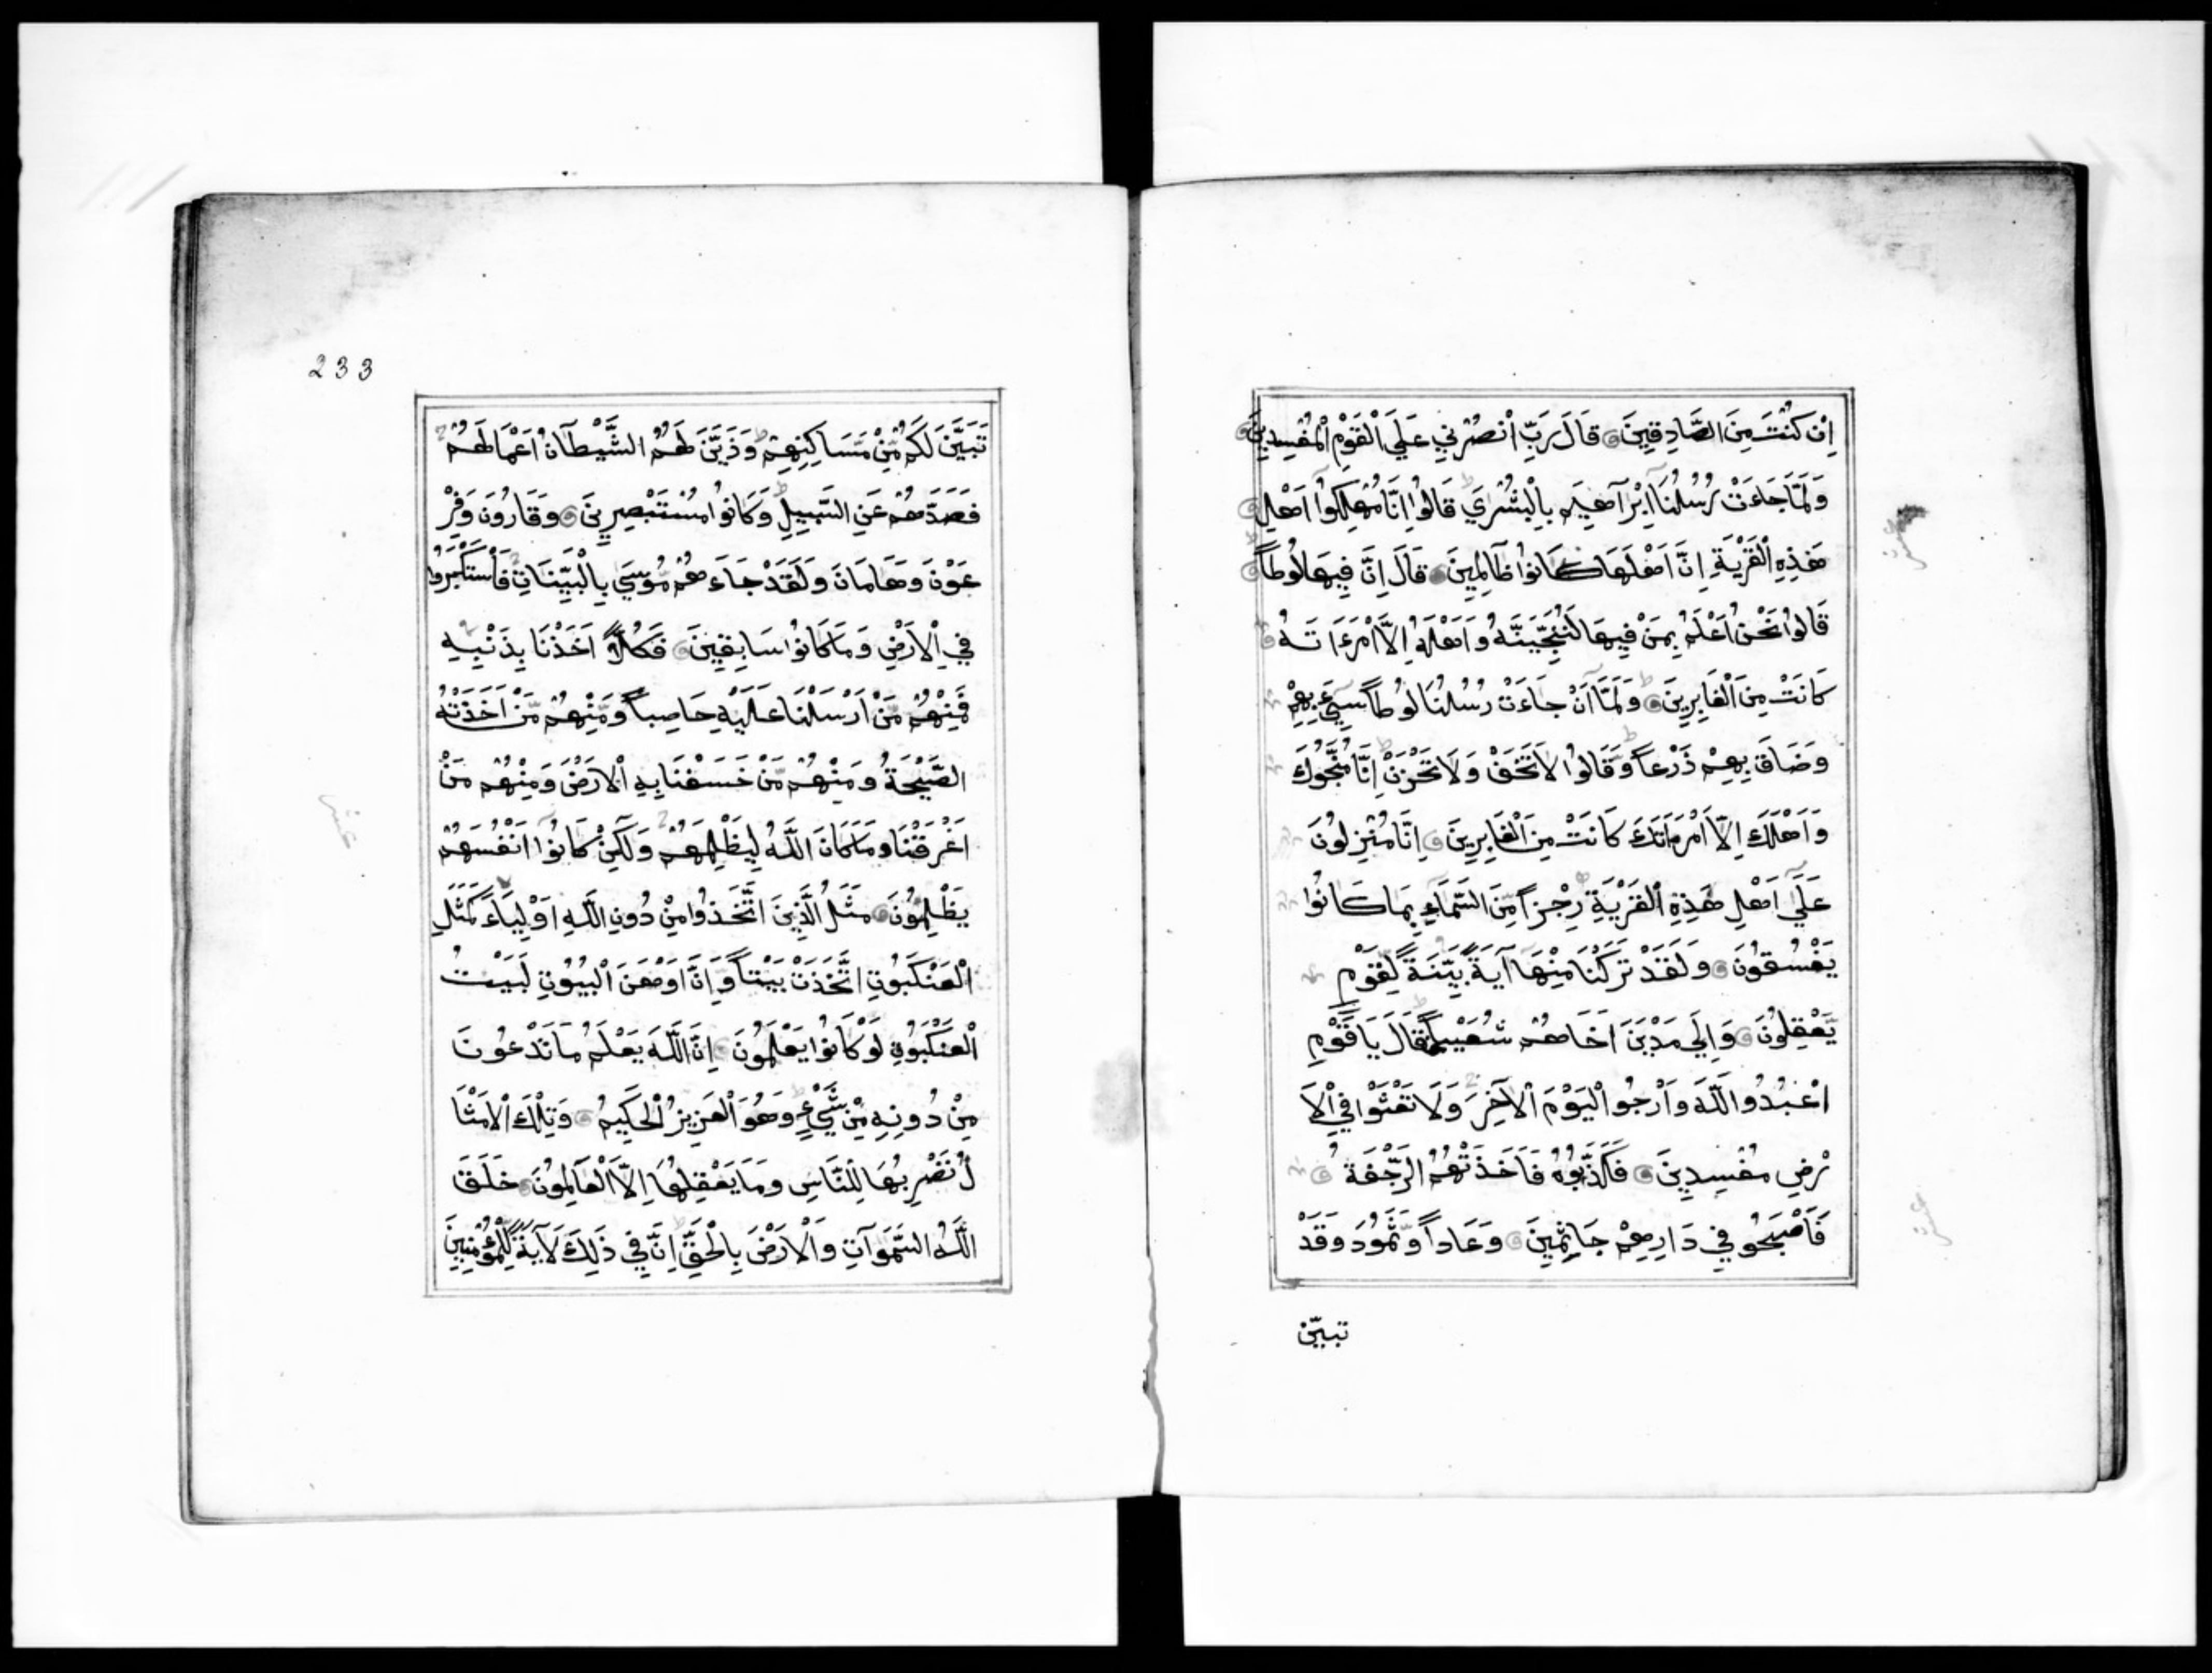 اِنْ كُنْتَ مِنَ الصَّادِقِينَ قَالَ رَبِّ انْصُرْنِي عَلَي الْقَوْمِ الْمُفْسِدِينَ
وَلَمَّا جَاءَتْ رُسُلُنَا اِبْرٰهِيمَ بِالْبُشْرَي قَالُوا اِنَّا مُهْلِكُوا اَهْلِ
هَذِهِ الْقَرْيَةِ اِنَّ اَهْلَهَا كَانُوا ظَالِمِينَ قَالَ اِنَّ فِيهَا لُوطاً
قَالُوا نَحْنُ اَعْلَمُ بِمَنْ فِيهَا لَنُنَجِّيَنَّهُ وَاَهْلَهُ اِلَّا امْرَاَتَهُ
كَانَتْ مِنَ الْغَابِرِينَ وَلَمَّا اَنْ جَاءَتْ رُسُلُنَا لُوطاً سِيءَ بِهِمْ
وَضَاقَ بِهِمْ ذَرْعاً وَقَالُوا لَا تَخَفْ وَلَا تَحْزَنْ اِنَّا مُنَجُّوكَ
وَاَهْلَكَ اِلَّا امْرَاَتَكَ كَانَتْ مِنَ الْغَابِرِينَ اِنَّا مُنْزِلُونَ
عَلَي اَهْلِ هَذِهِ الْقَرْيَةِ رِجْزاً مِنَ السَّمَاءِ بِمَا كَانُوا
يَفْسُقُونَ وَلَقَدْ تَرَكْنَا مِنْهَا آيَةً بَيِّنَةً لِقَوْمٍ
يَعْقِلُونَ وَاِلَي مَدْيَنَ اَخَاهُمْ شُعَيْباً فَقَالَ يَا قَوْمِ
اعْبُدُوا اللّٰهَ وَارْجُوا الْيَوْمَ الْآخِرَ وَلَا تَعْثَوْا فِي الْاَ
رْضِ مُفْسِدِينَ فَكَذَّبُوهُ فَاَخَذَتْهُمُ الرَّجْفَةُ
فَاَصْبَحُو فِي دَارِهِمْ جَاثِمِينَ وَعَاداً وَثَمُودَ وَقَدْ
تبيّن
233
تَبَيَّنَ لَكُمْ مِنْ مَسَاكِنِهِمْ وَذَيَّنَ لَهُمُ الشَّيْطَانُ اَعْمَالَهُمْ
فَصَدَّهُمْ عَنِ السَّبِيلِ وَكَانُوا مُسْتَبْصِرِينَ وَقَارُونَ وَفِرْ
عَوْنَ وَهَامَانَ وَلَقَدْ جَاءَهُمْ مُوسَي بِالْبَيِّنَاتِ فَاسْتَكْبَرُوا
فِي الْاَرْضِ وَمَا كَانُوا سَابِقِينَ فَكُلّاً اَخَذْنَا بِذَنْبِهِ
فَمِنْهُمْ مَنْ اَرْسَلْنَا عَلَيْهِ حَاصِباً وَمِنْهُمْ مَنْ اَخَذَتْهُ
الصَّيْحَةُ وَمِنْهُمْ مَنْ خَسَفْنَا بِهِ الْاَرْضَ وَمِنْهُمْ مَنْ
اَغْرَقْنَا وَمَا كَانَ اللّٰهُ لِيَظْلِمَهُمْ وَلَكِنْ كَانُوا اَنْفُسَهُمْ
يَظْلِمُونَ مَثَلُ الَّذِينَ اتَّخَذُوا مِنْ دُونِ اللّٰهِ اَوْلِيَاءَ كَمَثَلِ
الْعَنْكَبُوتِ اتَّخَذَتْ بَيْتاً وَاِنَّ اَوْهَنَ الْبُيُوتِ لَبَيْتُ
الْعَنْكَبُوتِ لَوْ كَانُوا يَعْلَمُونَ اِنَّ اللّٰهَ يَعْلَمُ مَا تَدْعُونَ
مِنْ دُونِهِ مِنْ شَيْءٍ وَهُوَ الْعَزِيزُ الْحَكِيمُ وَتِلْكَ الْاَمْثَا
لُ نَضْرِبُهَا لِلنَّاسِ وَمَا يَعْقِلُهَا اِلَّا الْعَالِمُونَ خَلَقَ
اللّٰهُ السَّمَوَاتِ وَالْاَرْضَ بِالْحَقِّ اِنَّ فِي ذَلِكَ لَآيَةً لِلْمُؤْمِنِينَ